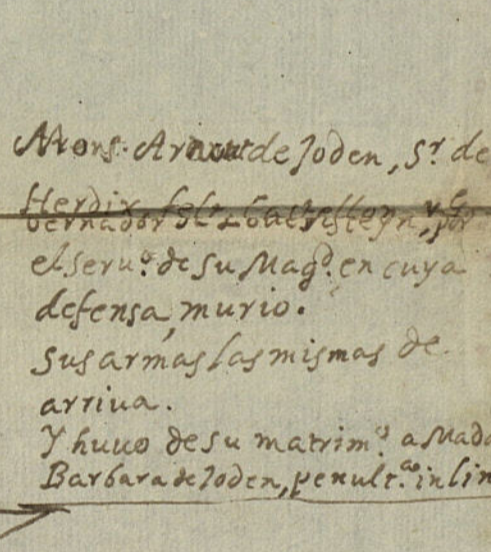 Mons. Arnout de Joden, Sr. de
Herdix
vernador
el seruo. de su Magd. en cuya
defensa, murio.
Sus armas las mismas de
arriua.
Y huuo de su matrimo. a Mada
Barbara de Joden, penultao. in lin